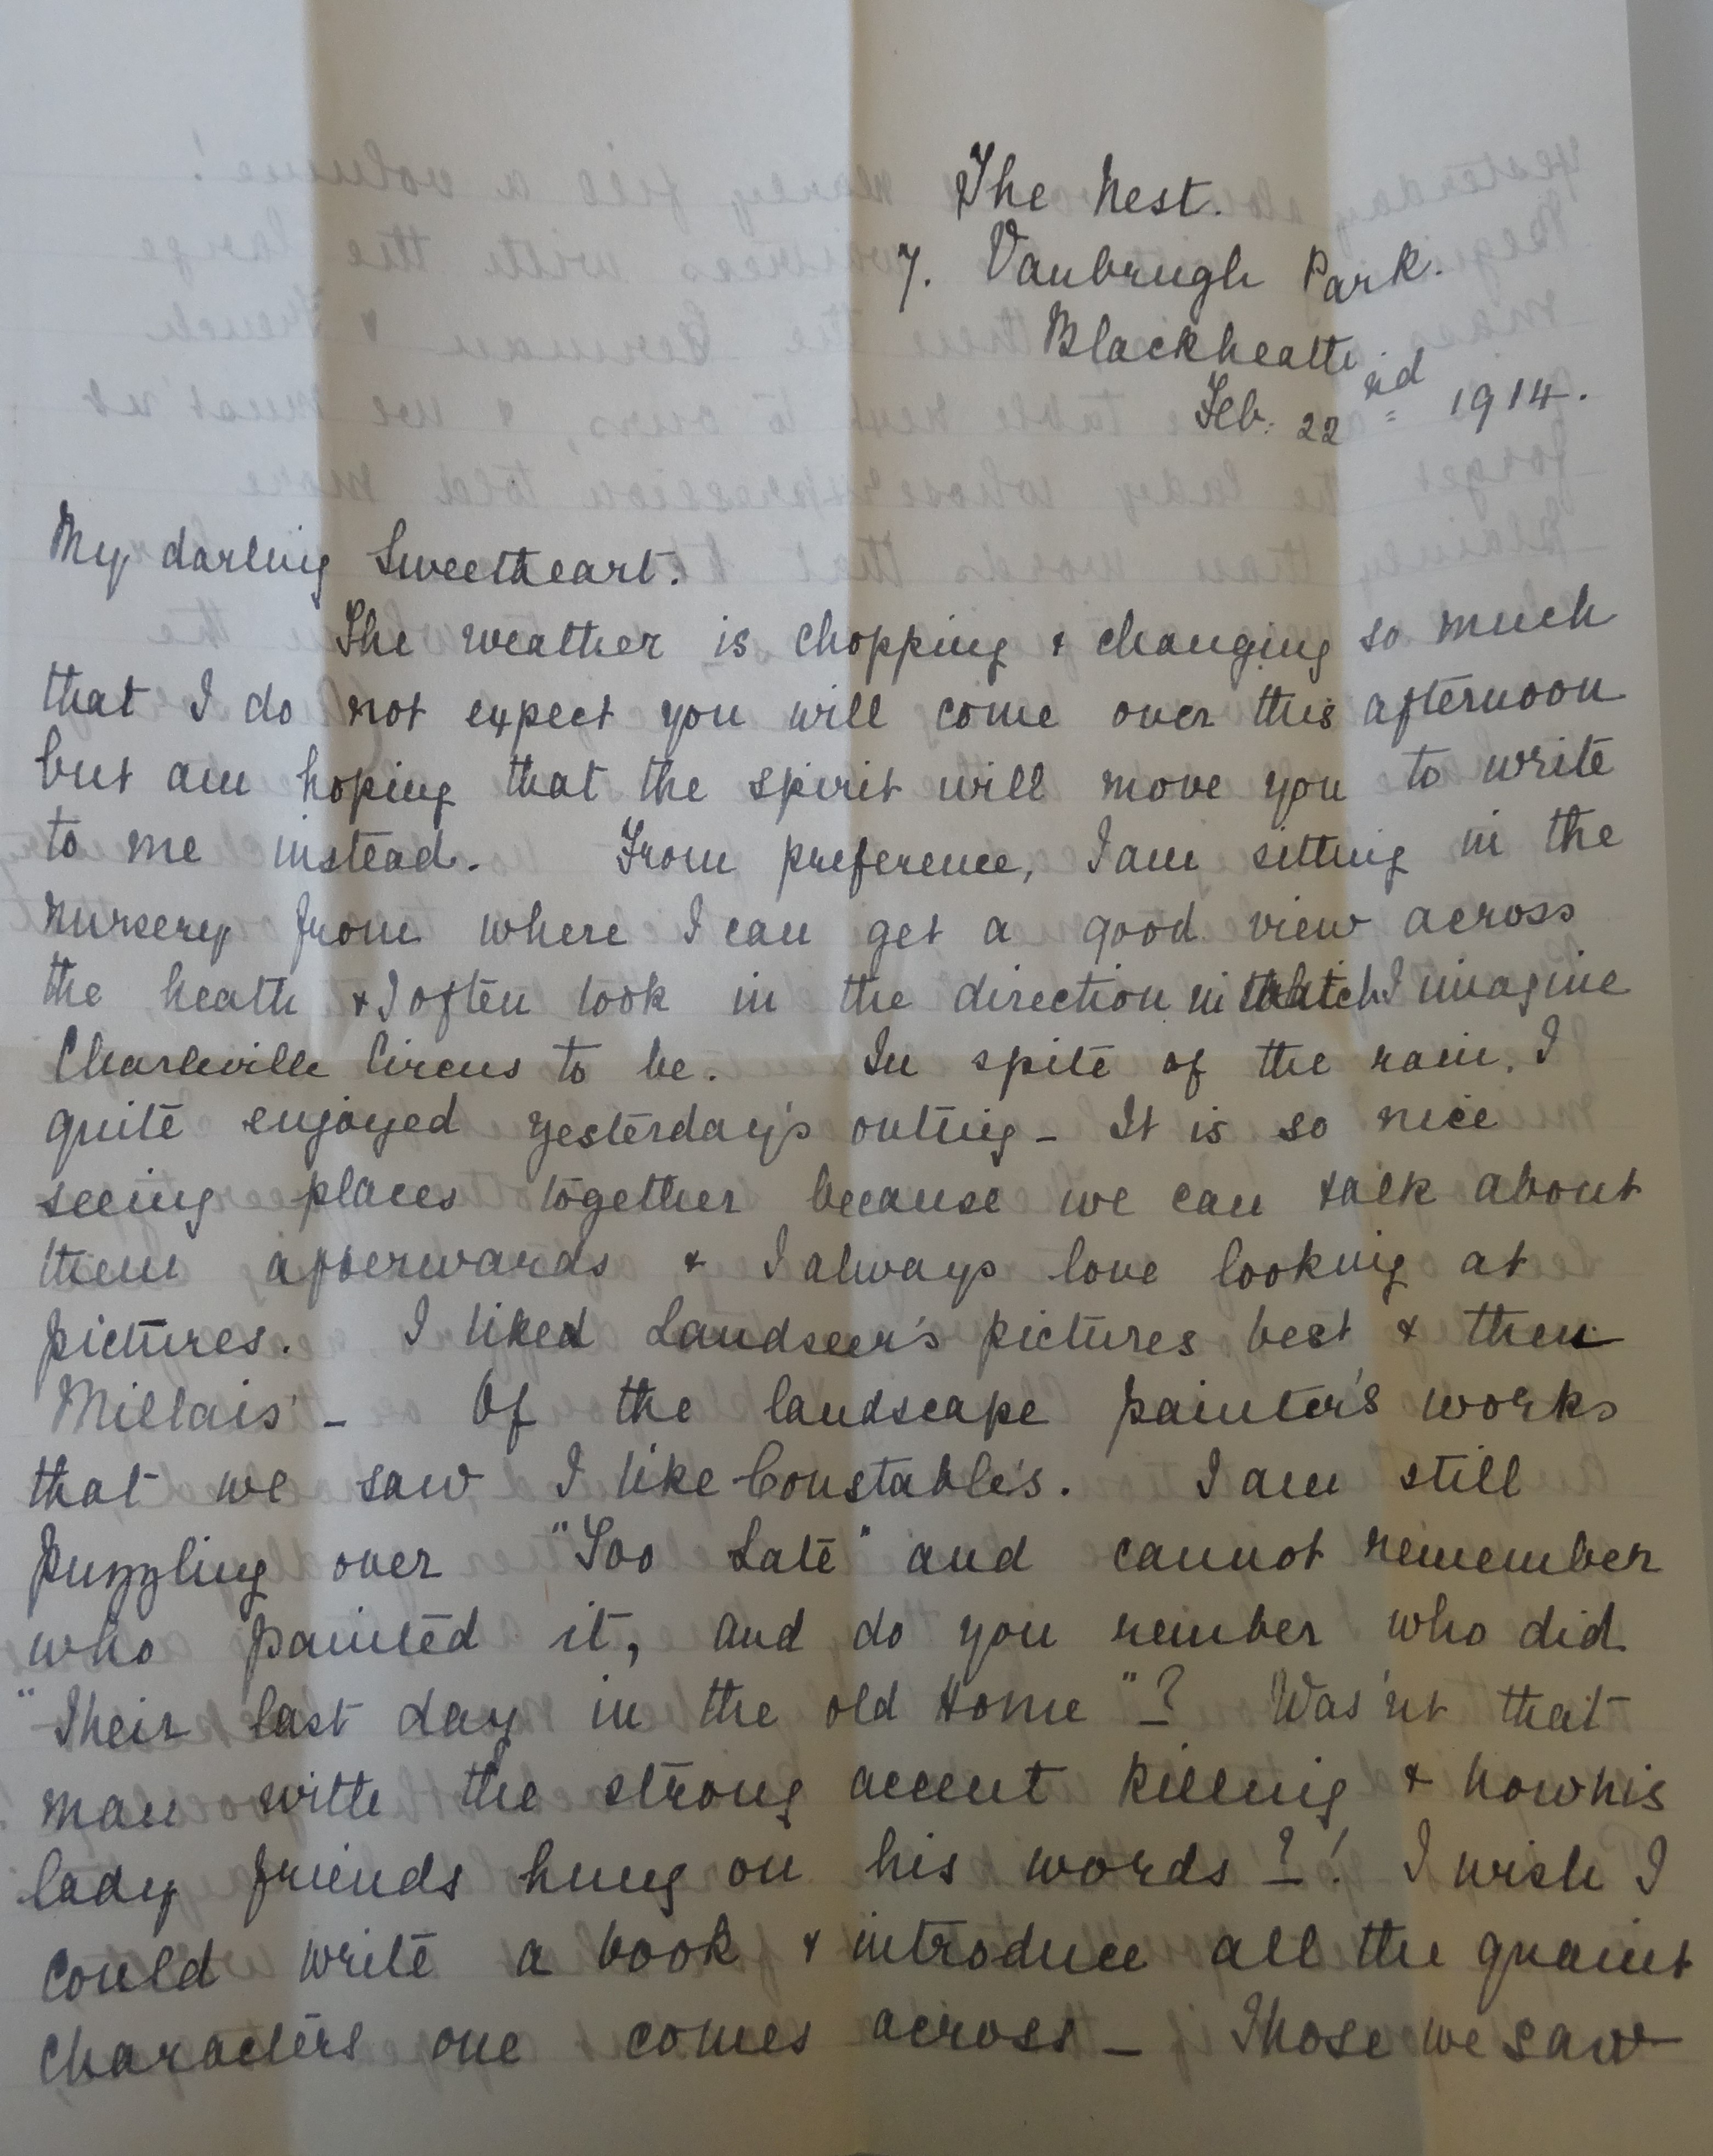 The Nest.
7. Vanbrugh Park.
Blackheath
Feb: 22nd 1914.
My darling Sweetheart.
The weather is chopping & changing so much
that I do not expect you will come over this afternoon
but am hoping that the spirit will move you to write
to me instead. From preference, I am sitting in the
nursery from where I can get a good view across
the heath & I often look in the direction in which I imagine
Charleville Circus to be. In spite of the rain, I
quite enjoyed yesterday's outing - It is so nice
seeing places together because we can talk about
them afterwards & I always love looking at
pictures. I liked Landseer's pictures best & then
Millais' - Of the landscape painter's works
that we saw I like Constable's. I am still
puzzling over "Too Late" and cannot remember
who painted it, and do you rember who did
"Their last day in the old Home"? Was'nt that
man with the strong accent killing & how his
lady friends hung on his words?! I wish I
could write a book & introduce all the quaint
characters one comes across - Those we saw